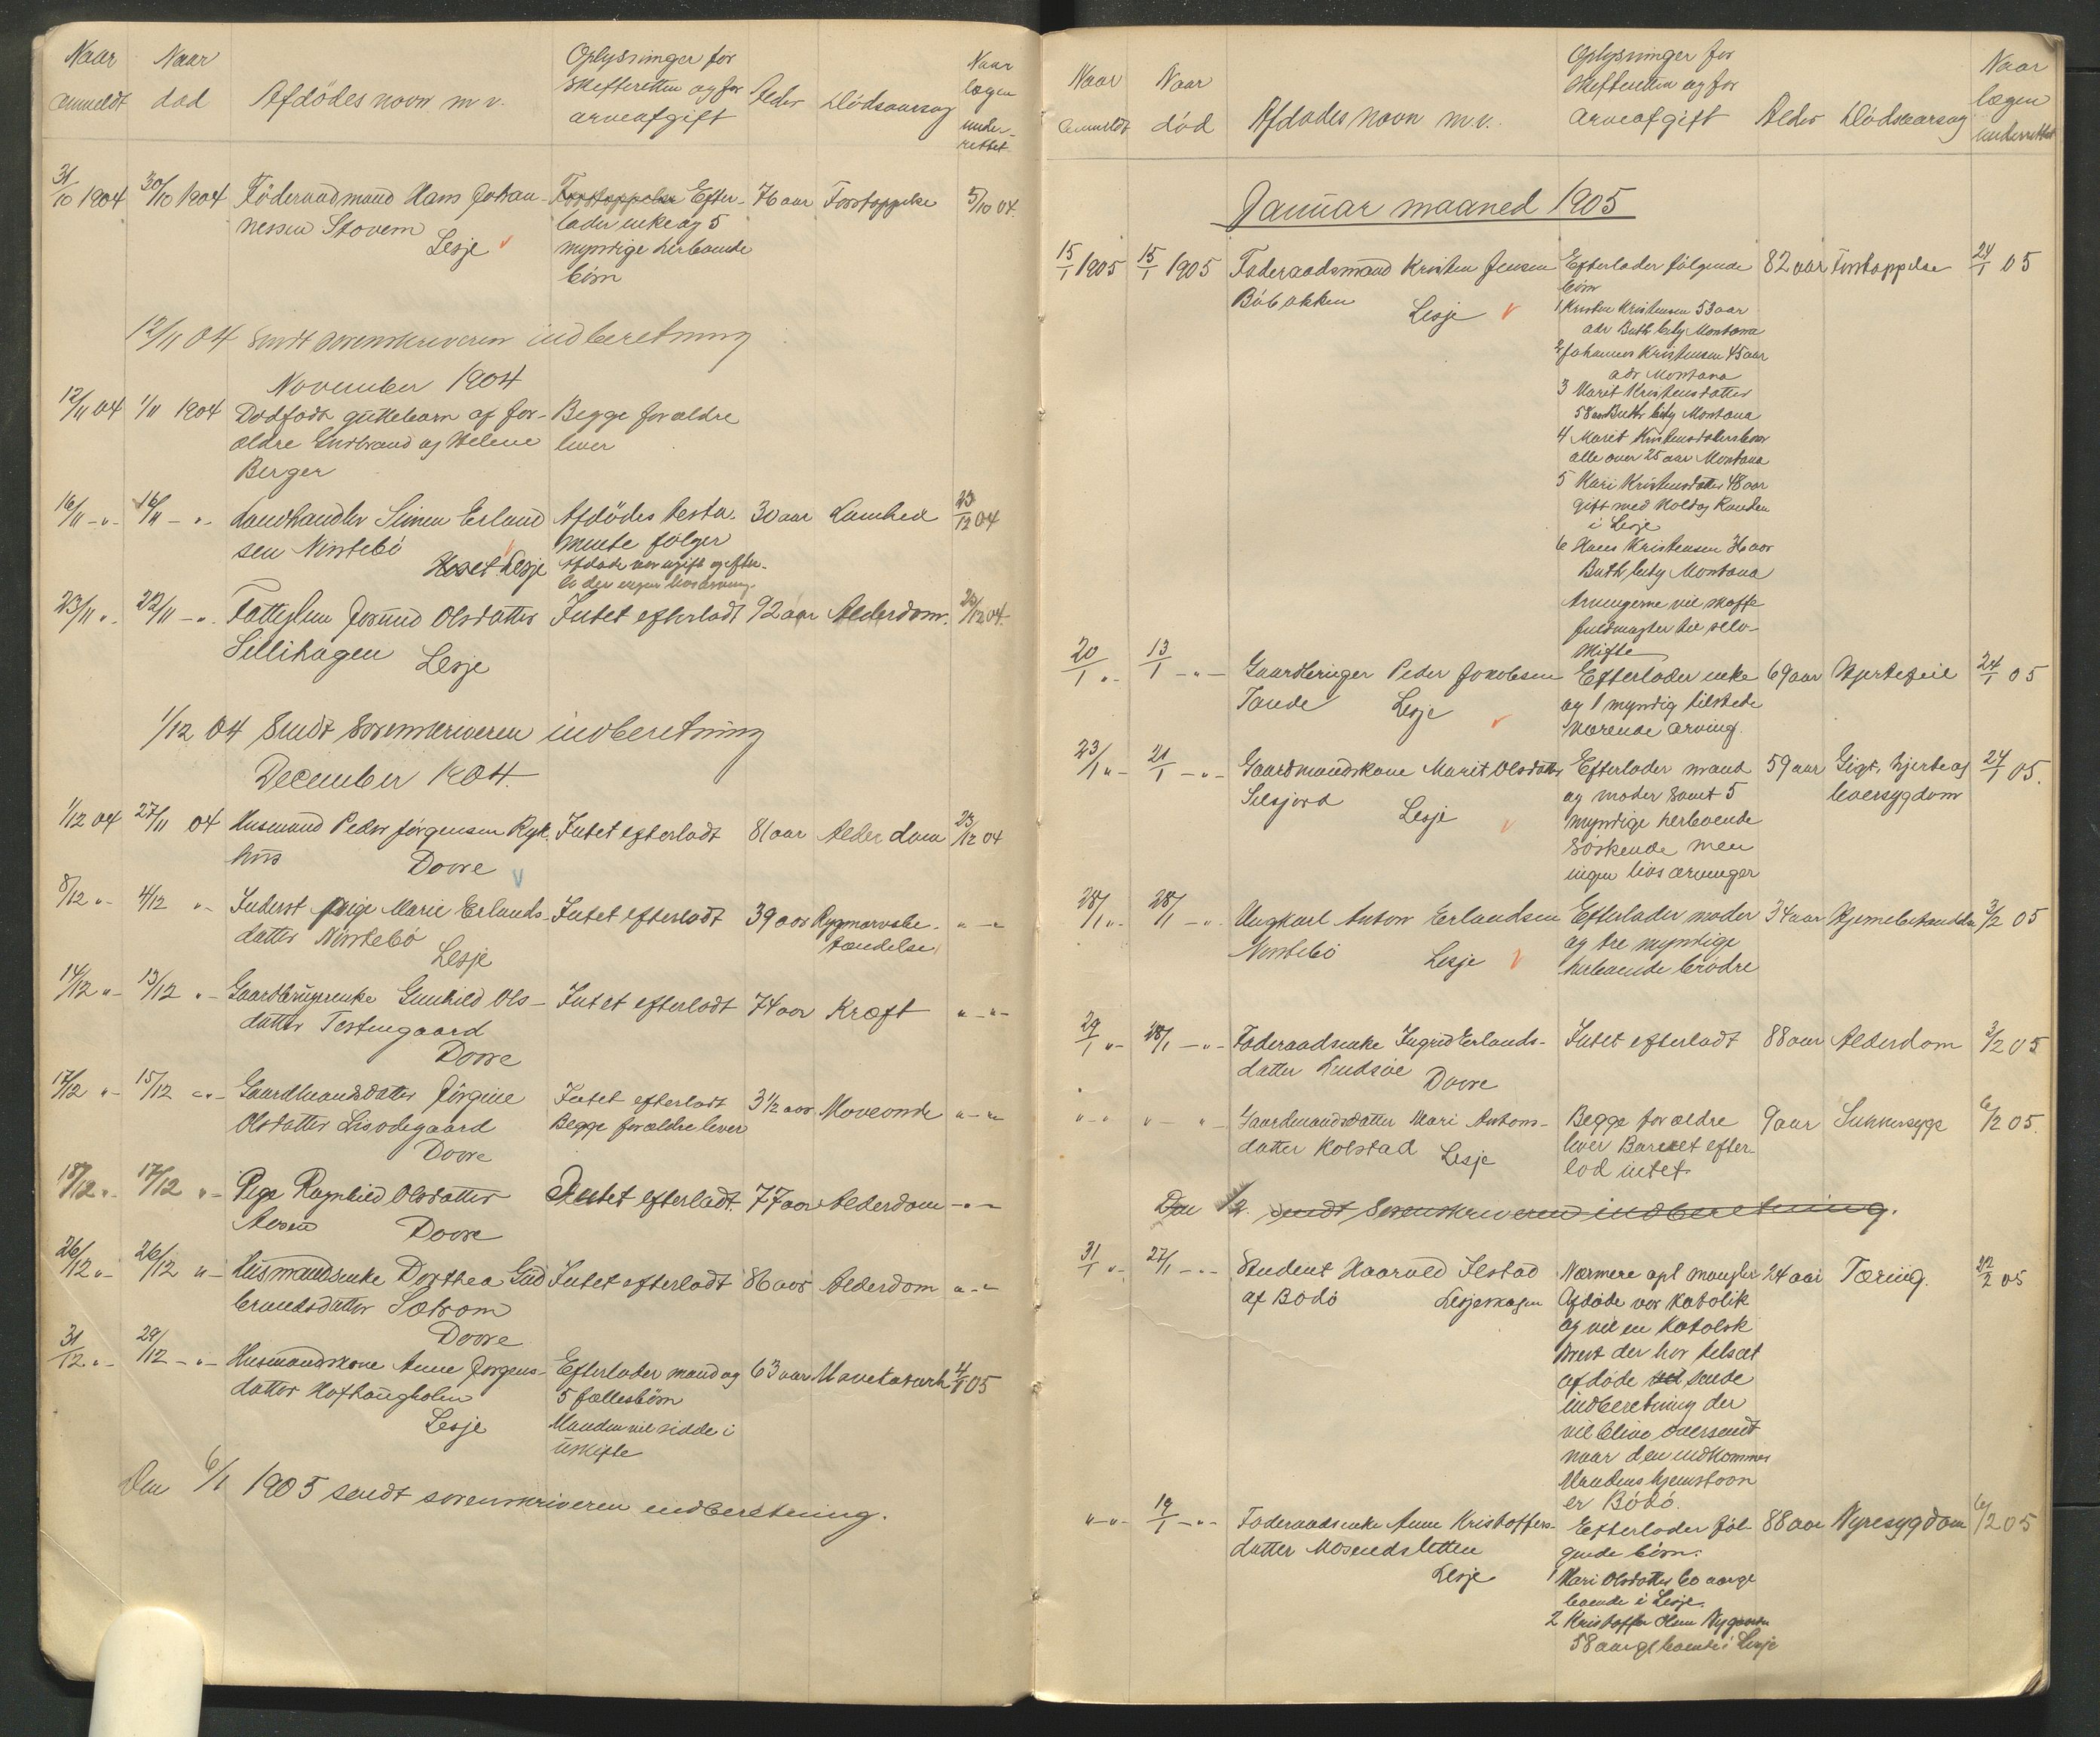 Naar anmeldt
Naar död
Afdödes navn m. v.
Oplysninger for skifteretten og for arveafgift
Alder
Dödsaarsag
Naar lægen underrettet
31/10 1904 30/10 1904 Föderaadmand Hans Johan- Forstoppelse Efter- 76 aar Forstoppelse 5/10 04.
nessen Stovern lader enke og 5
Lesje myndige herboende
börn
12/11 04 sendt sorenskriveren indberetning
November 1904
12/11 04 1/11 1904 Dödfödt pikebarn af for- Begge forældre
ældre Gudbrand og Helene lever
Berger
16/11 -"- 16/11 -"- Landhandler Simen Erland Afdödes testa- 30 aar Lamhed 23/12 04
sen Nörstebö mente følger
Lesje Afdöde var ugift og efter-
lader ingen livsarving.
23/11 ". 22/11 -". Fattiglem Jorund Olsdatter Intet efterladt 92 aar Alderdom. 23/12 04.
Sillihagen Lesje
1/12 04 Sendt Sorenskriveren indberetning
December 1904.
1/12 04 27/11 04 Husmand Peder Jörgensen Ryk- Intet efterladt 81 aar Alderdom 23/12 04
hus Dovre
8/12 "- 4/12 "- Inderst pige Marie Erlands- Intet efterladt 39 aar Rygmarvsbe- "-"
datter Nörstebö tændelse
Lesje
14/12 "- 13/12 "- Gaardbrugerenke Gunhild Ols- Intet efterladt 74 aar Kræft "-"-
datter Toftengaard
Dovre
17/12 "- 15/12 -"- Gaardmandsdatter Jörgine Intet efterladt 3 1/2 aar Maveonde "-"-
Olsdatter Begge forældre lever
Dovre
18/12 ". 17/12 "- Pige Ragnhild Olsdatter Intet efterladt. 77 aar Alderdom -"-
Dovre
26/12 "- 26/12 "- Husmandsenke Dorthea Gud Intet efterladt 86 aar Alderdom "-"
brandsdatter Sætrom
Dovre
31/12 "- 29/12 -"- Husmandskone Anne Jörgens- Efterlader mand og 63 aar Mavekatarrh 4/1 05
datter Hofhaugholen 5 fællesbörn
Lesje Manden vil sidde i
uskifte
Den 6/1 1905 sendt sorenskriveren indberetning.
Naar anmeldt
Naar död
Afdödes navn m.v.
Oplysninger for skifteretten og for arveafgift
Alder
Dödsaarsag
Naar lægen underrettet
Januar maaned 1905
15/1 1905 15/1 1905 Föderaadsmand Kristen Jensen Efterlader fölgende 82 aar Forstoppelse 24/1 05
Böbakken Lesje börn
1 Kristen Kristensen 53 aar
adr Buth City Montana
2 Johannes Kristensen 45 aar
adr Montana
3 Marit Kristensdatter
58 aar Buth City Montana
4 Marit Kristensdatters börn
alle over 25 aar Montana
5 Kari Kristensdatter 48 aar
gift med
i Lesje
6 Hans Kristensen 36 aar
Buth City Montana
Arvingerne vil skaffe
fuldmagter til selv-
skifte
20/1 "- 13/1 -"- Gaardbruger Peder Jakobsen Efterlader enke 69 aar Hjertefeil 24/1 05
Tande Lesje og 1 myndig tilstede
værende arving.
23/1 "- 21/1 -"- Gaardmandskone Marit Olsdatter Efterlader mand 59 aar Gigt, hjerte og 24/1 05.
Selsjord Lesje og moder samt 5 leversygdom
myndige herboende
söskende men
ingen livsarvinger
28/1 ". 28/1 -". Ungkarl Anton Erlandsen Efterlader moder 34 aar 3/2 05
Nörstebö Lesje og tre myndige
herboende brödre
29/1 "- 28/1 -"- Föderaadsenke Ingrid Erlands- Intet efterladt 88 aar Alderdom 3/2 05
datter Lindsöe Dovre
"-" "-" Gaardmandsdatter Mari Antons- Begge forældre 9 aar Sukkersyge 6/2 05.
datter Kolstad Lesje lever Barnet efter-
lod intet.
Den 2. sendt Sorenskriveren indberetning.
31/1 "- 27/1 -"- Student Haavald Ilstad Nærmere opl mangler 24 aar Tæring. 22/2 05
af Bodö Lesjeskogen Afdöde var katolik
og vil en katolsk
prest der har tilsæt
afdöde sende
indberetning der
vil blive oversendt
naar den indkommer
Mandens hjemstavn
er Bodö.
"-"- 19/1 -"- Föderaadsenke Anne Kristoffers- Efterlader föl- 88 aar Nyresygdom 6/2 05
datter Mosendsletten gende börn:
Lesje 1 Mari Olsdatter 60 aar
boende i Lesje.
2 Kristoffer Olsen Nygaarden
58 aar boende i Lesje